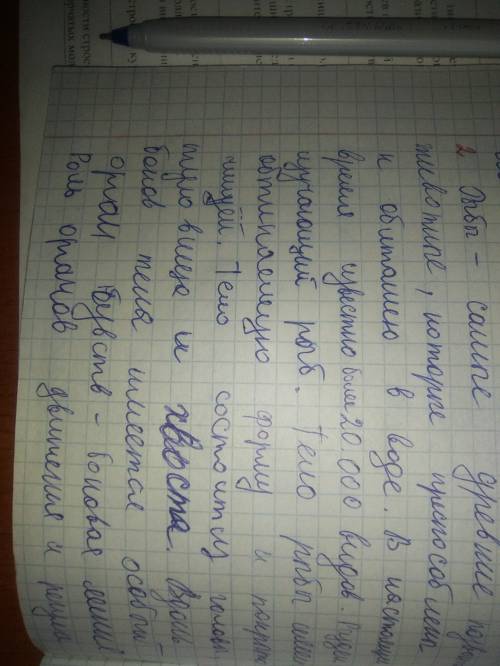 2. Рыбы – самые древние позв
животные, которые приспособлен-
к обитанию в воде. В настоящ
время известно более 20.000 видов.
изучающий рыб. Тело рыбы име
обтекаемую форму и покрыт
чешуёй. Тело состоит из головы,
туловища и хвоста. Вдоль
боков тела имеется особый
орган чувств – боковая линия
Роль органов движения и руля